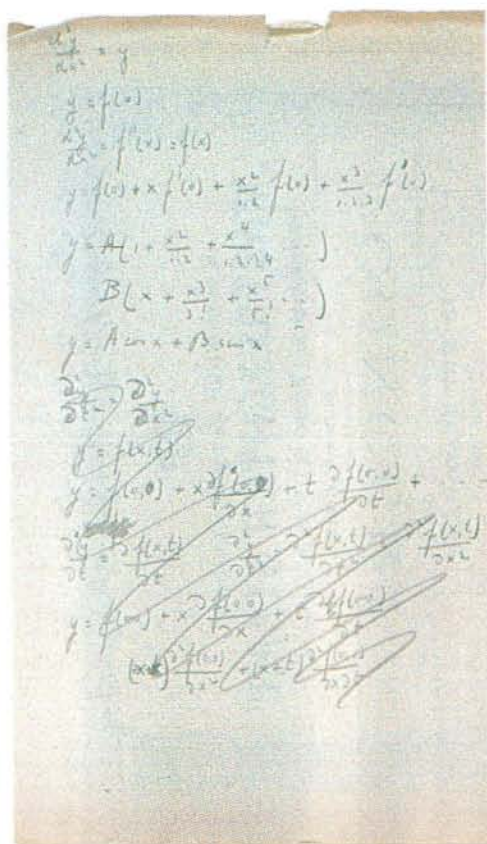 d²y/dx² = y
y = f(x)
d²y/dx² = f''(x) = f(x)
y = f(0) + x f'(0) + x²/1.2 f(0) + x³/1.2.3 f'(0)
y = A(1 + x²/1.2 + x⁴/1.2.3.4 ...)
B(x + x³/3! + x⁵/5! ...)
y = A cos x + B sin x
∂²y/∂t² = ∂²y/∂x²
y = f(x,t)
y = f(0,0) + x ∂f(0,0)/∂x + t ∂f(0,0)/∂t + ...
= ∂f(x,t)/∂t ∂²f(x,t)/∂t² ∂²f(x,t)/∂x²
y = f(00) + x ∂f(00)/∂x + t ∂f(00)/∂t
∂²f(00)/∂x² ∂²f(00)/∂x∂t